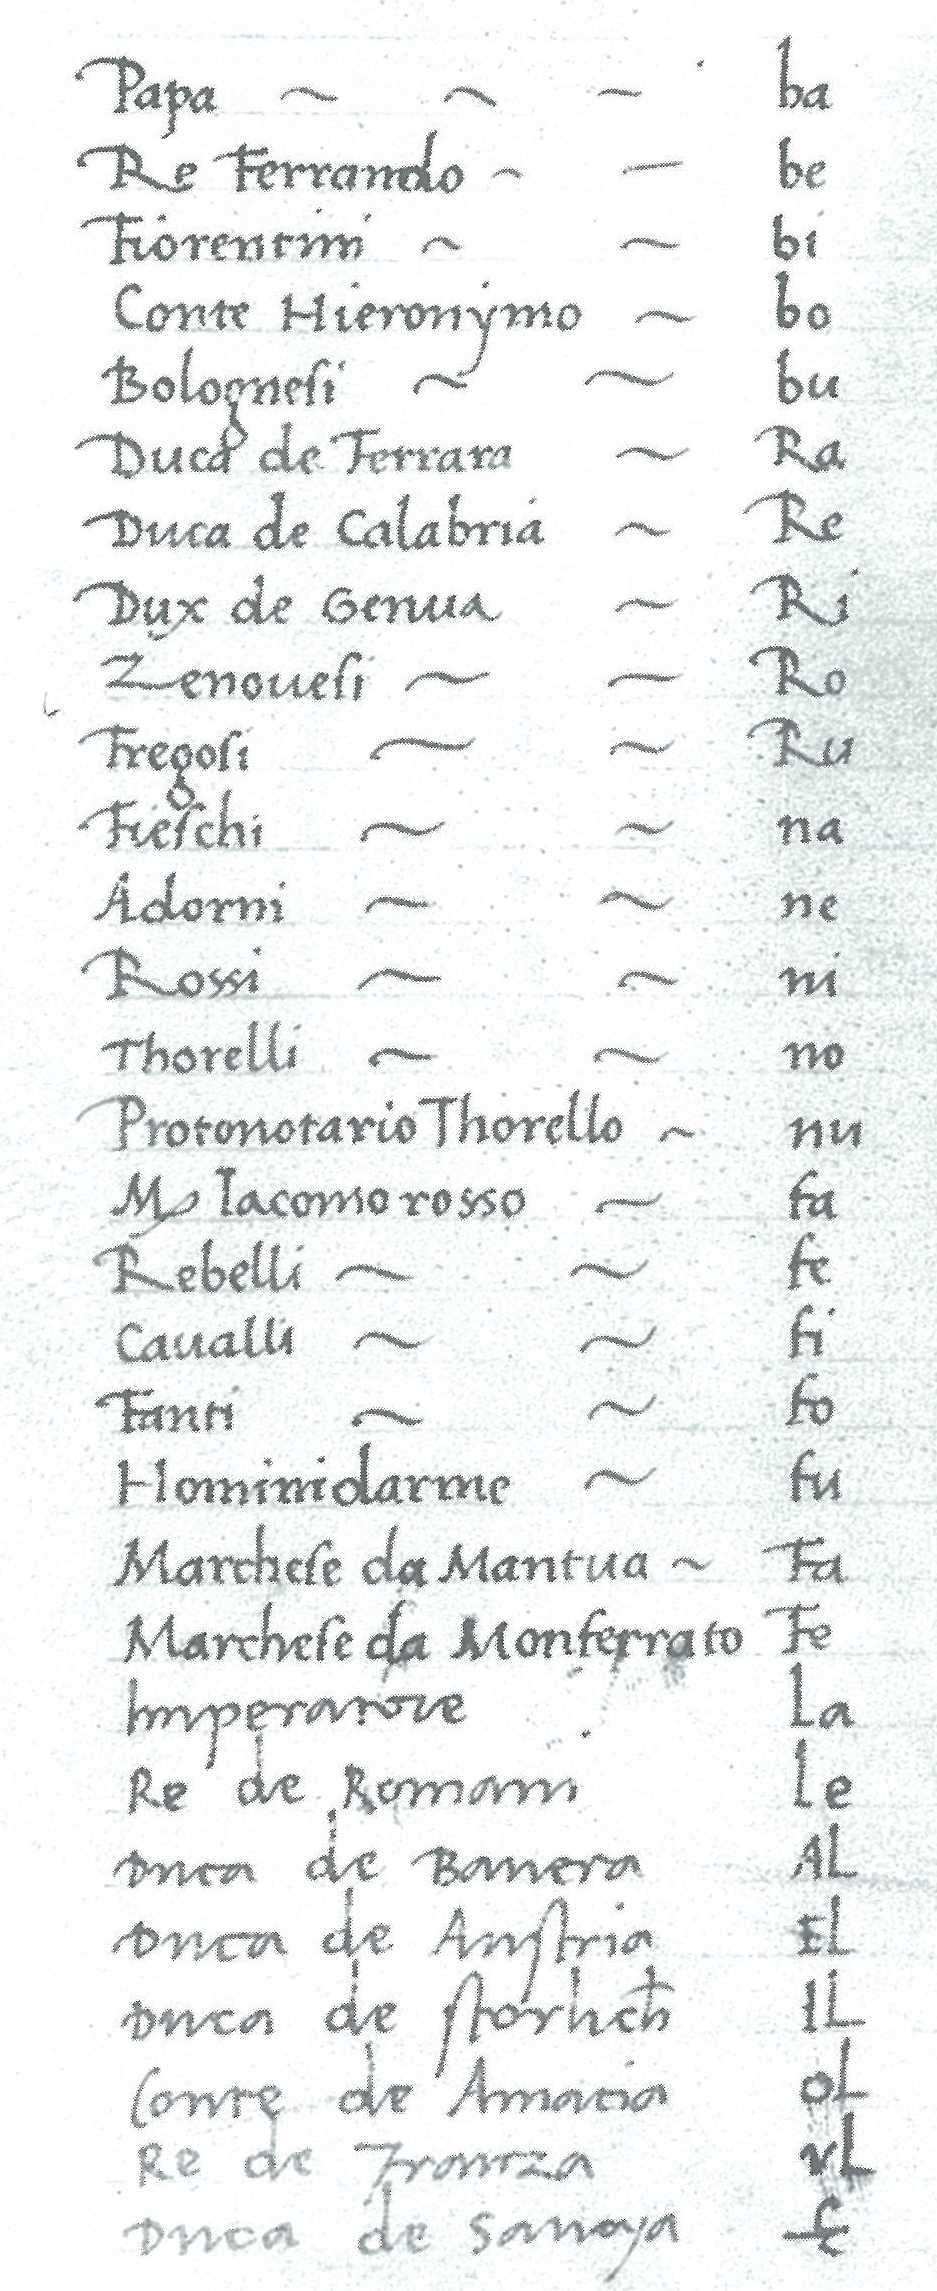 Papa ~ ~ ~ ba
Re Ferrando ~ — be
Fiorentini ~ ~ bi
Conte Hieronymo ~ bo
Bologneſi ~ ~ bu
Duca de Ferrara ~ Ra
Duca de Calabria ~ Re
Dux de Genua ~ Ri
Zenoueſi ~ ~ Ro
Fregoſi ~ ~ Ru
Fieſchi ~ ~ na
Adorni ~ ~ ne
Rossi ~ ~ ni
Thorelli ~ ~ no
Protonotario Thorello ~ nu
Iacomo rosso ~ fa
Rebelli ~ ~ fe
Caualli ~ ~ fi
Fanti ~ ~ fo
Hominidarme ~ fu
Marcheſe da Mantua ~ Fa
Marcheſe da Monferrato Fe
Imperatore La
Re de Romani Le
Duca de Bauera AL
Duca de Auſtria EL
Duca de IL
Conte de oL
Re de Frantza vL
Duca de Sauoya